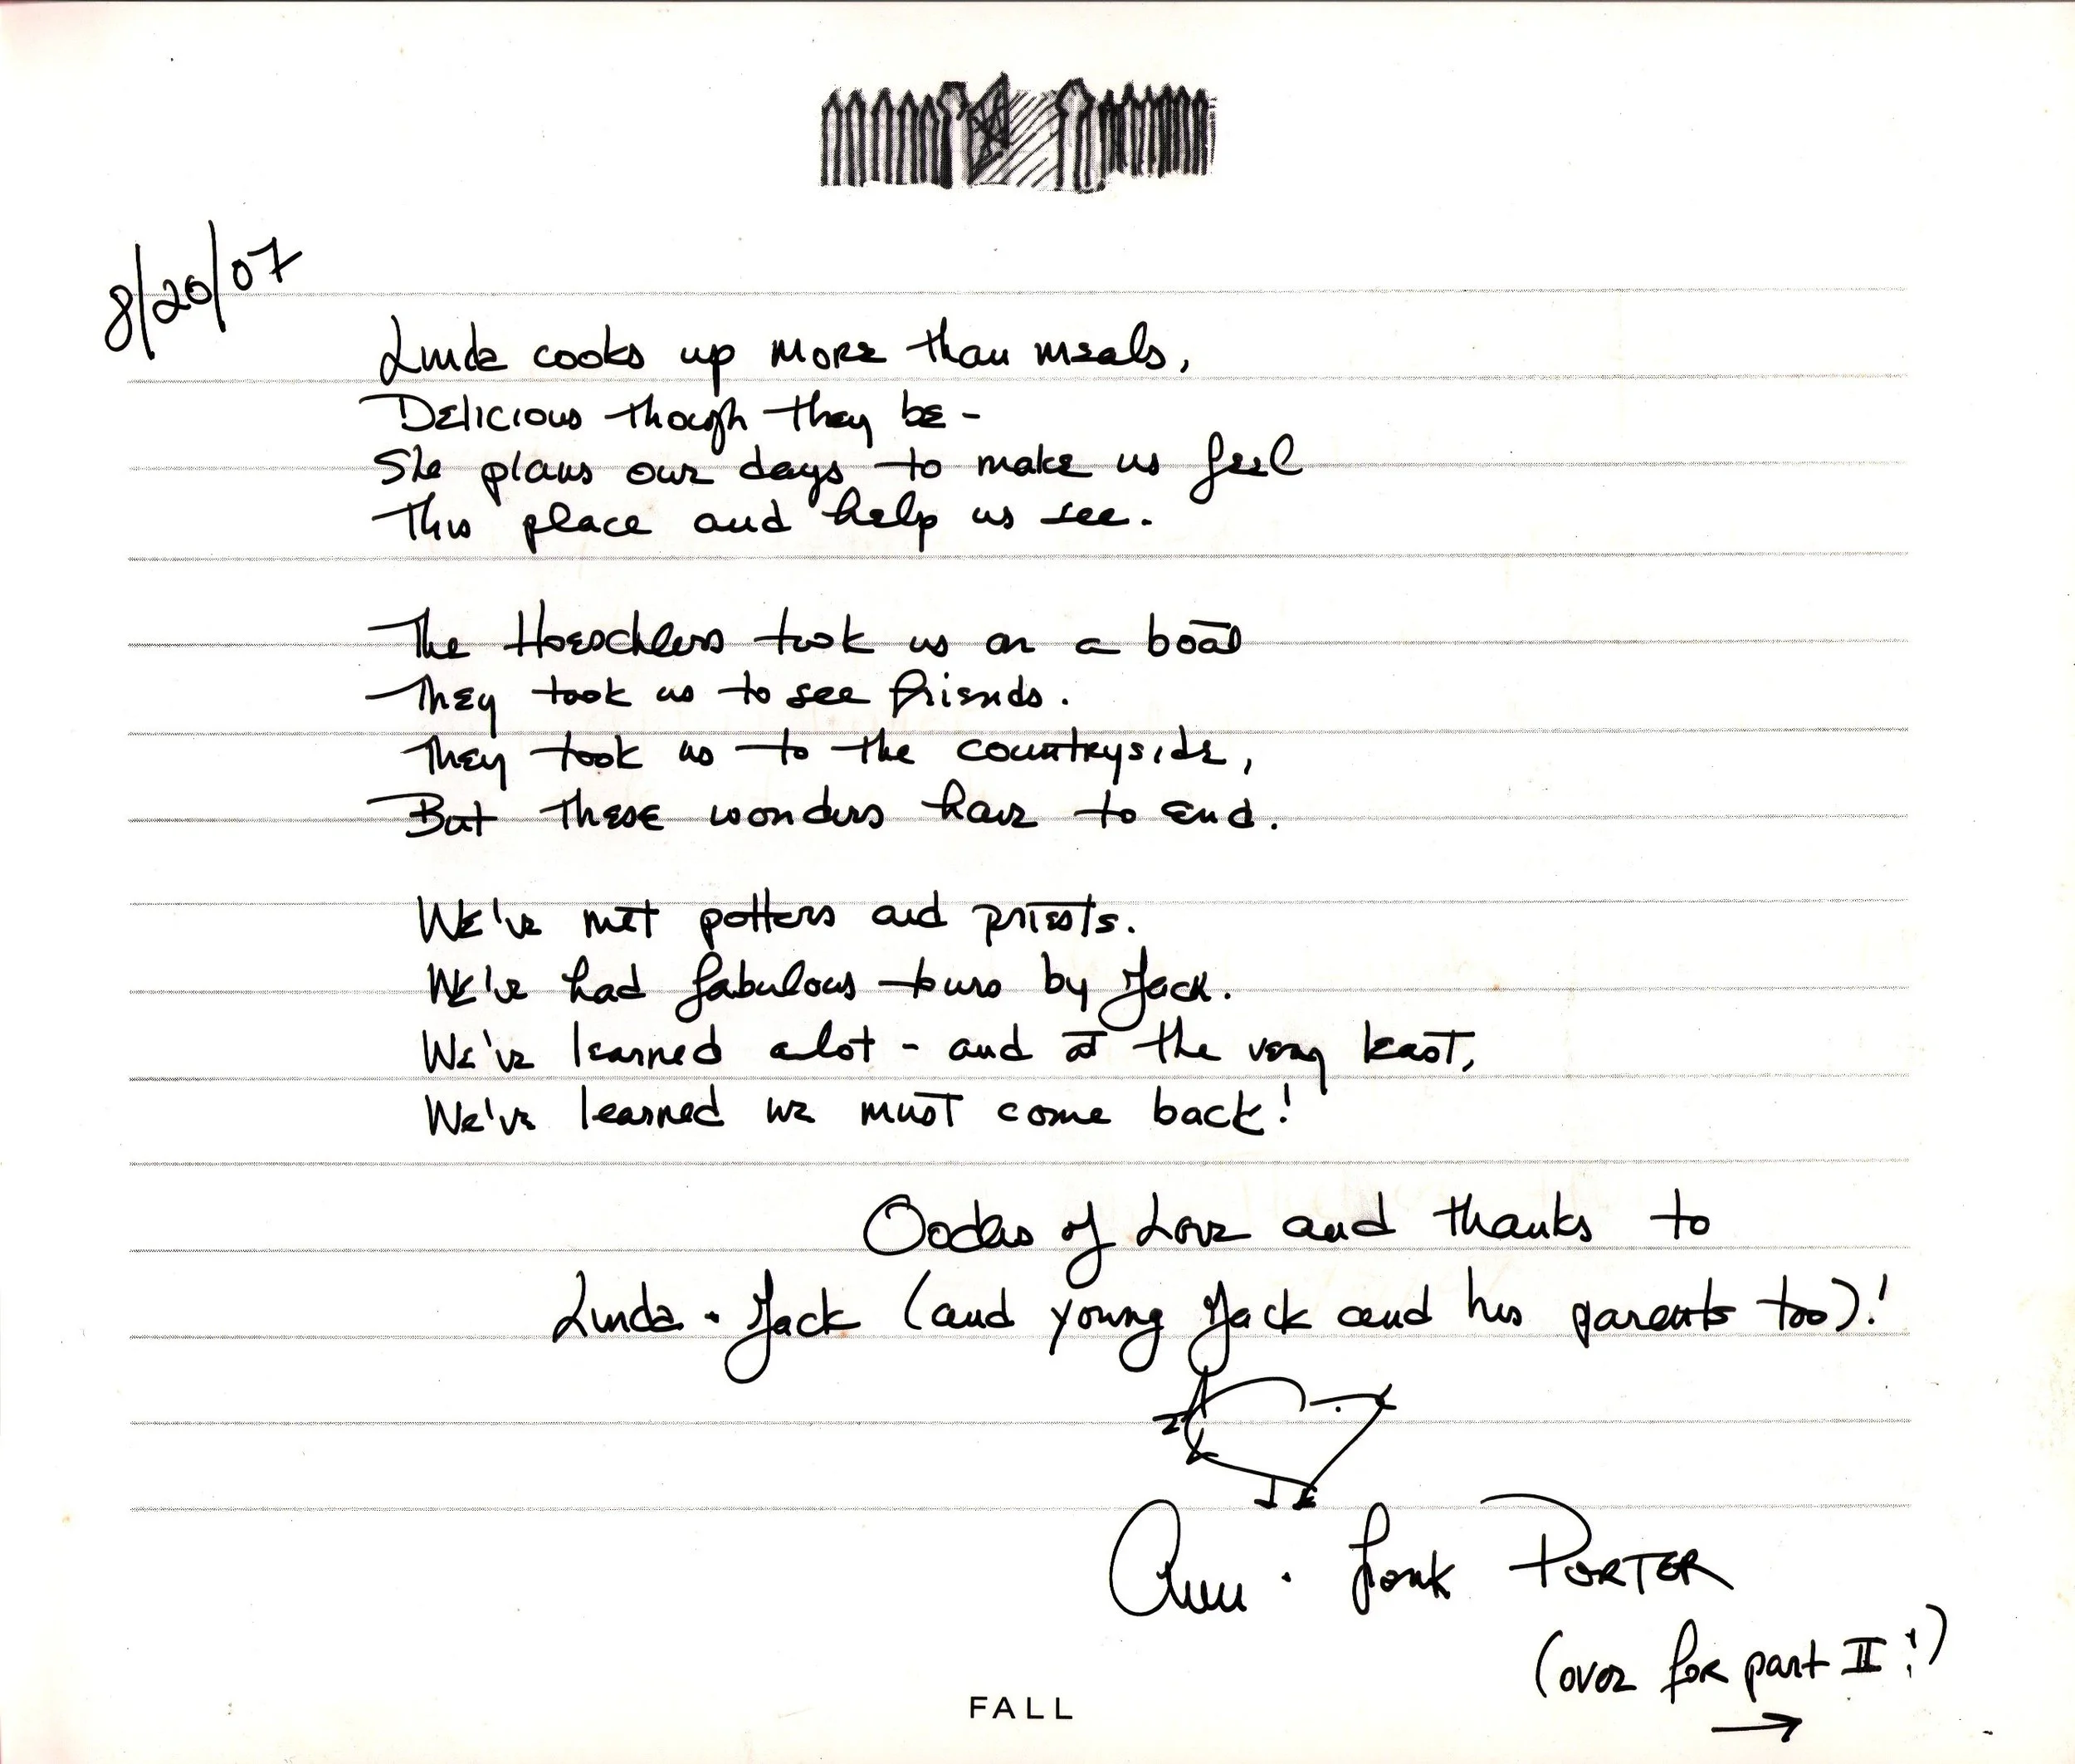 8/20/07
Linda cooks up more than meals,
Delicious though they be -
She plans our days to make us feel
This place and help us see.
The Hoeschlers took us on a boat
They took us to see friends.
They took us to the countryside,
But these wonders have to end.
We've met potters and priests.
We've had fabulous tours by Jack.
We've learned alot - and at the very least,
We've learned we must come back!
Oodles of Love and thanks to
Linda + Jack (and young Jack and his parents too)!
Ann + PORTER
(over for part II!)
→
FALL